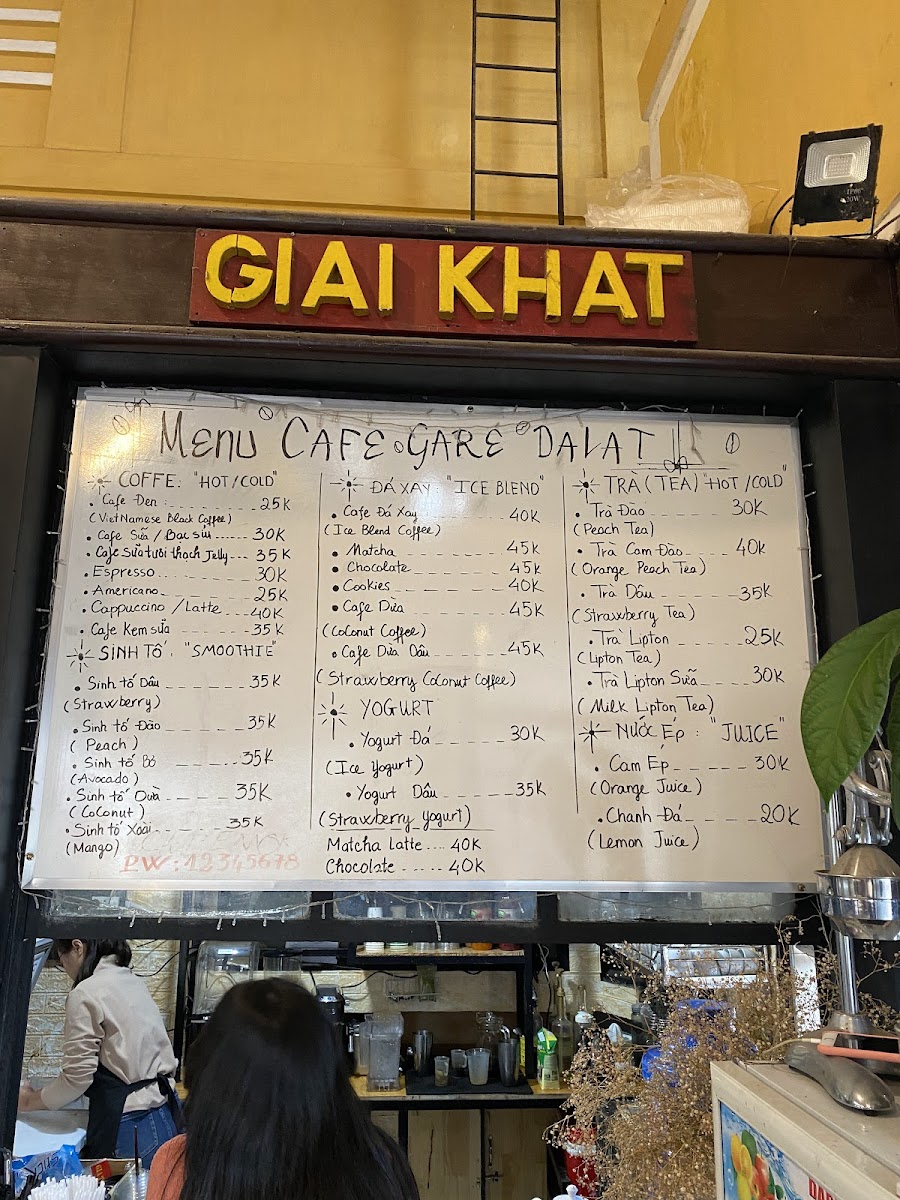 GIAI KHAT
MENU CAFE GARE DALAT
COFFE: "HOT/COLD"
Cafe Đen: 25K
(VietNamese Black Coffee)
Cafe Sữa / Bạc sỉu ...... 30K
Cafe sữa tươi thạch Jelly--- 35K
Espresso ... 30K
Americano 25K
Cappuccino / Latte 40K
Cafe Kem sữa 35K
SINH TỐ: "SMOOTHIE"
Sinh tố Dâu 35K
(Strawberry)
Sinh tố Đào 35K
(Peach)
Sinh tố Bơ 35K
(Avocado)
Sinh tố Dừa 35K
(Coconut)
Sinh tố Xoài 35K
(Mango)
PW: 12345678
ĐÁ XAY: "ICE BLEND"
Cafe Đá Xay 40K
(Ice Blend Coffee)
Matcha 45K
Chocolate 45K
Cookies 40K
Cafe Dừa 45K
(Coconut Coffee)
Cafe Dừa Dâu 45K
(Strawberry Coconut Coffee)
YOGURT
Yogurt Đá 30K
(Ice Yogurt)
Yogurt Dâu 35K
(Strawberry yogurt)
Matcha Latte .... 40K
Chocolate ..... 40K
TRÀ (TEA) "HOT/COLD"
Trà Đào 30K
(Peach Tea)
Trà Cam Đào 40K
(Orange Peach Tea)
Trà Dâu 35K
(Strawberry Tea)
Trà Lipton 25K
(Lipton Tea)
Trà Lipton Sữa 30K
(Milk Lipton Tea)
NƯỚC ÉP: "JUICE"
Cam Ép 30K
(Orange Juice)
Chanh Đá 20K
(Lemon Juice)